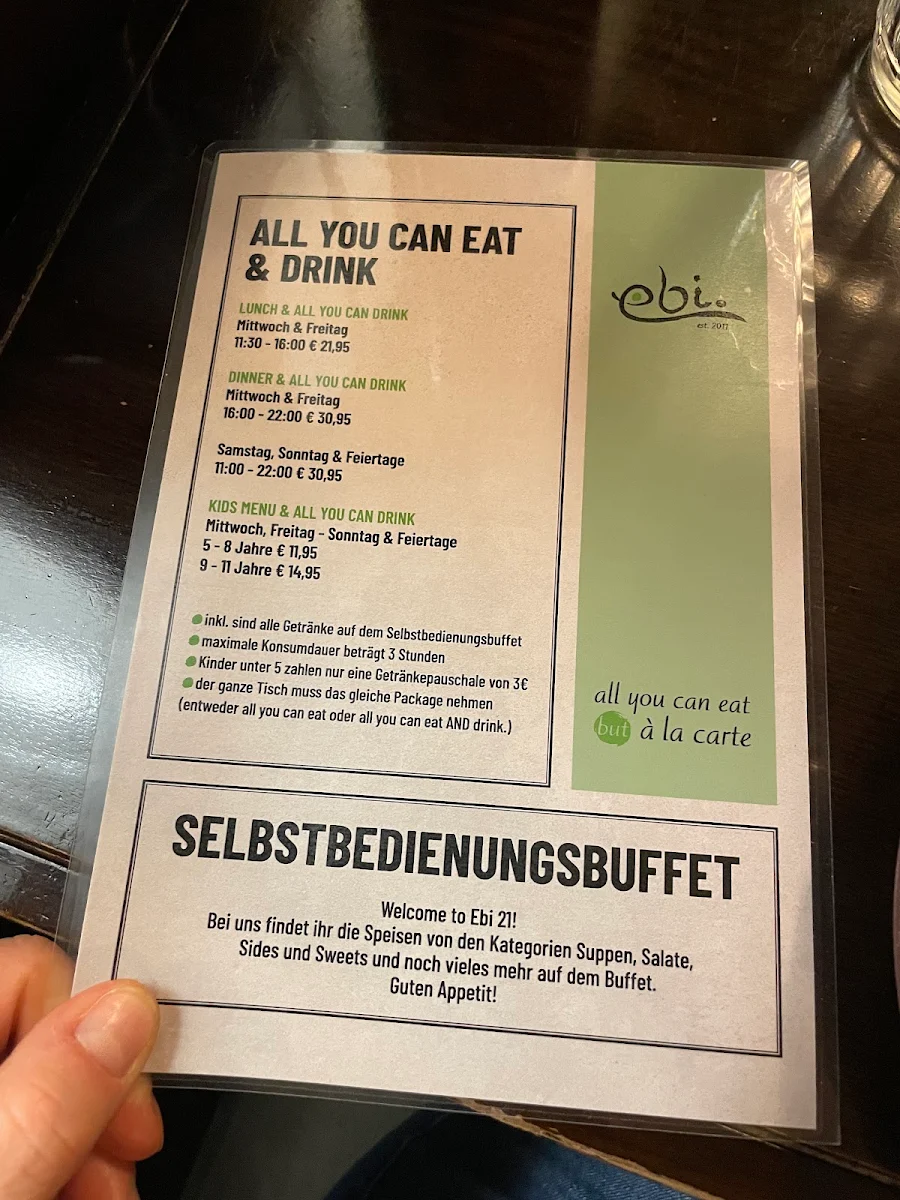 ALL YOU CAN EAT
& DRINK
LUNCH & ALL YOU CAN DRINK
Mittwoch & Freitag
11:30 - 16:00 € 21,95
DINNER & ALL YOU CAN DRINK
Mittwoch & Freitag
16:00 - 22:00 € 30,95
Samstag, Sonntag & Feiertage
11:00 - 22:00 € 30,95
KIDS MENU & ALL YOU CAN DRINK
Mittwoch, Freitag - Sonntag & Feiertage
5 - 8 Jahre € 11,95
9 - 11 Jahre € 14,95
inkl. sind alle Getränke auf dem Selbstbedienungsbuffet
maximale Konsumdauer beträgt 3 Stunden
Kinder unter 5 zahlen nur eine Getränkepauschale von 3€
der ganze Tisch muss das gleiche Package nehmen
(entweder all you can eat oder all you can eat AND drink.)
ebi.
est. 2011
all you can eat
but à la carte
SELBSTBEDIENUNGSBUFFET
Welcome to Ebi 21!
Bei uns findet ihr die Speisen von den Kategorien Suppen, Salate,
Sides und Sweets und noch vieles mehr auf dem Buffet.
Guten Appetit!